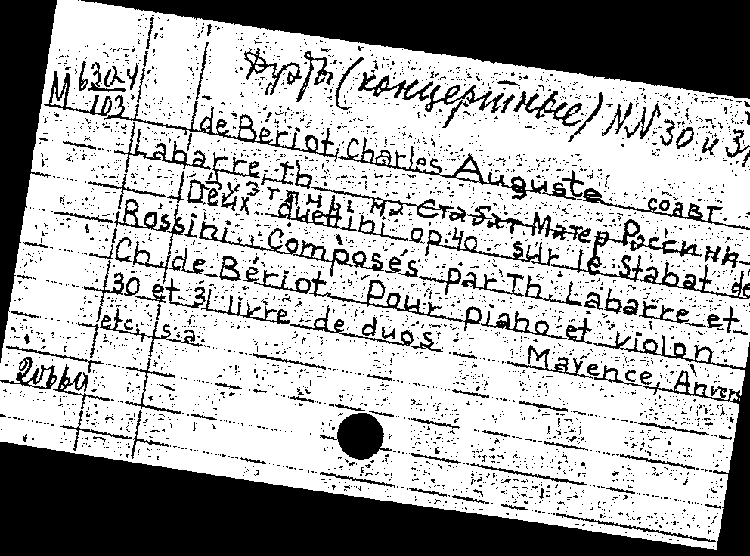 Дуэты (концертные) NN 30 и 31
М 630-4
103
de Bériot, Charles Auguste соавт.
Labarre, Th.
на Стабат Матер Россини
Deux duettini op. 40 sur le Stabat de
Rossini. Composés par Th. Labarre et
Ch. de Bériot. Pour piano et violon.
30 et 31 livre de duos Mayence, Anvers
etc., s.a.